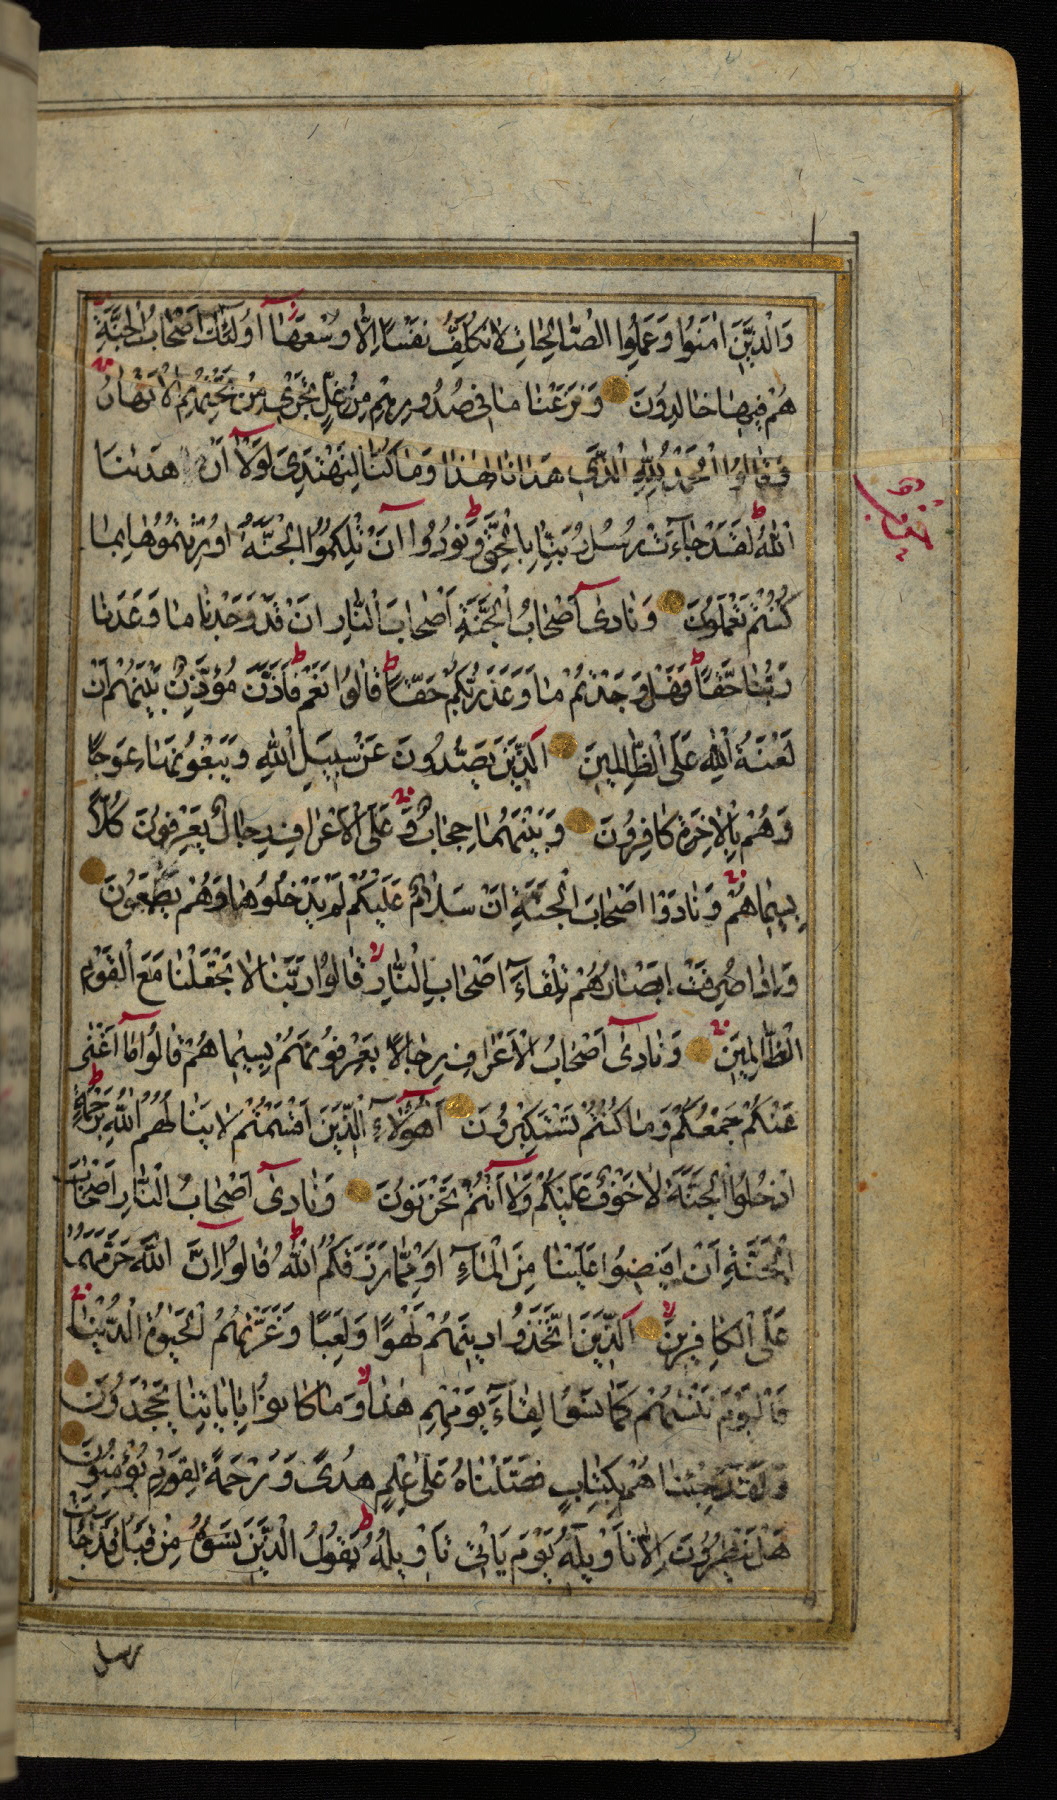 وَالَّذِينَ اٰمَنُوا وَعَمِلُوا الصَّالِحَاتِ لَا نُكَلِّفُ نَفْسًا اِلَّا وُسْعَهَا اُولٰئِكَ اَصْحَابُ الْجَنَّةِ
هُمْ فِيهَا خَالِدُونَ وَنَزَعْنَا مَا فِي صُدُورِهِمْ مِنْ غِلٍّ تَجْرِي مِنْ تَحْتِهِمُ الْاَنْهَارُ
وَقَالُوا الْحَمْدُ لِلّٰهِ الَّذِي هَدَانَا لِهٰذَا وَمَا كُنَّا لِنَهْتَدِيَ لَوْلَا اَنْ هَدٰينَا
اللّٰهُ لَقَدْ جَاءَتْ رُسُلُ رَبِّنَا بِالْحَقِّ وَنُودُوا اَنْ تِلْكُمُ الْجَنَّةُ اُورِثْتُمُوهَا بِمَا
كُنْتُمْ تَعْمَلُونَ وَنَادٰى اَصْحَابُ الْجَنَّةِ اَصْحَابَ النَّارِ اَنْ قَدْ وَجَدْنَا مَا وَعَدَنَا
رَبُّنَا حَقًّا فَهَلْ وَجَدْتُمْ مَا وَعَدَ رَبُّكُمْ حَقًّا قَالُوا نَعَمْ فَاَذَّنَ مُؤَذِّنٌ بَيْنَهُمْ اَنْ
لَعْنَةُ اللّٰهِ عَلَى الظَّالِمِينَ اَلَّذِينَ يَصُدُّونَ عَنْ سَبِيلِ اللّٰهِ وَيَبْغُونَهَا عِوَجًا
وَهُمْ بِالْاٰخِرَةِ كَافِرُونَ وَبَيْنَهُمَا حِجَابٌ وَعَلَى الْاَعْرَافِ رِجَالٌ يَعْرِفُونَ كُلًّا
بِسِيمَاهُمْ وَنَادَوْا اَصْحَابَ الْجَنَّةِ اَنْ سَلَامٌ عَلَيْكُمْ لَمْ يَدْخُلُوهَا وَهُمْ يَطْمَعُونَ
وَاِذَا صُرِفَتْ اَبْصَارُهُمْ تِلْقَاءَ اَصْحَابِ النَّارِ قَالُوا رَبَّنَا لَا تَجْعَلْنَا مَعَ الْقَوْمِ
الظَّالِمِينَ وَنَادٰى اَصْحَابُ الْاَعْرَافِ رِجَالًا يَعْرِفُونَهُمْ بِسِيمَاهُمْ قَالُوا مَا اَغْنٰى
عَنْكُمْ جَمْعُكُمْ وَمَا كُنْتُمْ تَسْتَكْبِرُونَ اَهٰؤُلَاءِ الَّذِينَ اَقْسَمْتُمْ لَا يَنَالُهُمُ اللّٰهُ بِرَحْمَةٍ
اُدْخُلُوا الْجَنَّةَ لَا خَوْفٌ عَلَيْكُمْ وَلَا اَنْتُمْ تَحْزَنُونَ وَنَادٰى اَصْحَابُ النَّارِ اَصْحَابَ
الْجَنَّةِ اَنْ اَفِيضُوا عَلَيْنَا مِنَ الْمَاءِ اَوْ مِمَّا رَزَقَكُمُ اللّٰهُ قَالُوا اِنَّ اللّٰهَ حَرَّمَهُمَا
عَلَى الْكَافِرِينَ اَلَّذِينَ اتَّخَذُوا دِينَهُمْ لَهْوًا وَلَعِبًا وَغَرَّتْهُمُ الْحَيٰوةُ الدُّنْيَا
فَالْيَوْمَ نَنْسٰيهُمْ كَمَا نَسُوا لِقَاءَ يَوْمِهِمْ هٰذَا وَمَا كَانُوا بِاٰيَاتِنَا يَجْحَدُونَ
وَلَقَدْ جِئْنَاهُمْ بِكِتَابٍ فَصَّلْنَاهُ عَلٰى عِلْمٍ هُدًى وَرَحْمَةً لِقَوْمٍ يُؤْمِنُونَ
هَلْ يَنْظُرُونَ اِلَّا تَاْوِيلَهُ يَوْمَ يَاْتِي تَاْوِيلُهُ يَقُولُ الَّذِينَ نَسُوهُ مِنْ قَبْلُ قَدْ جَاءَتْ
رسل
حزب